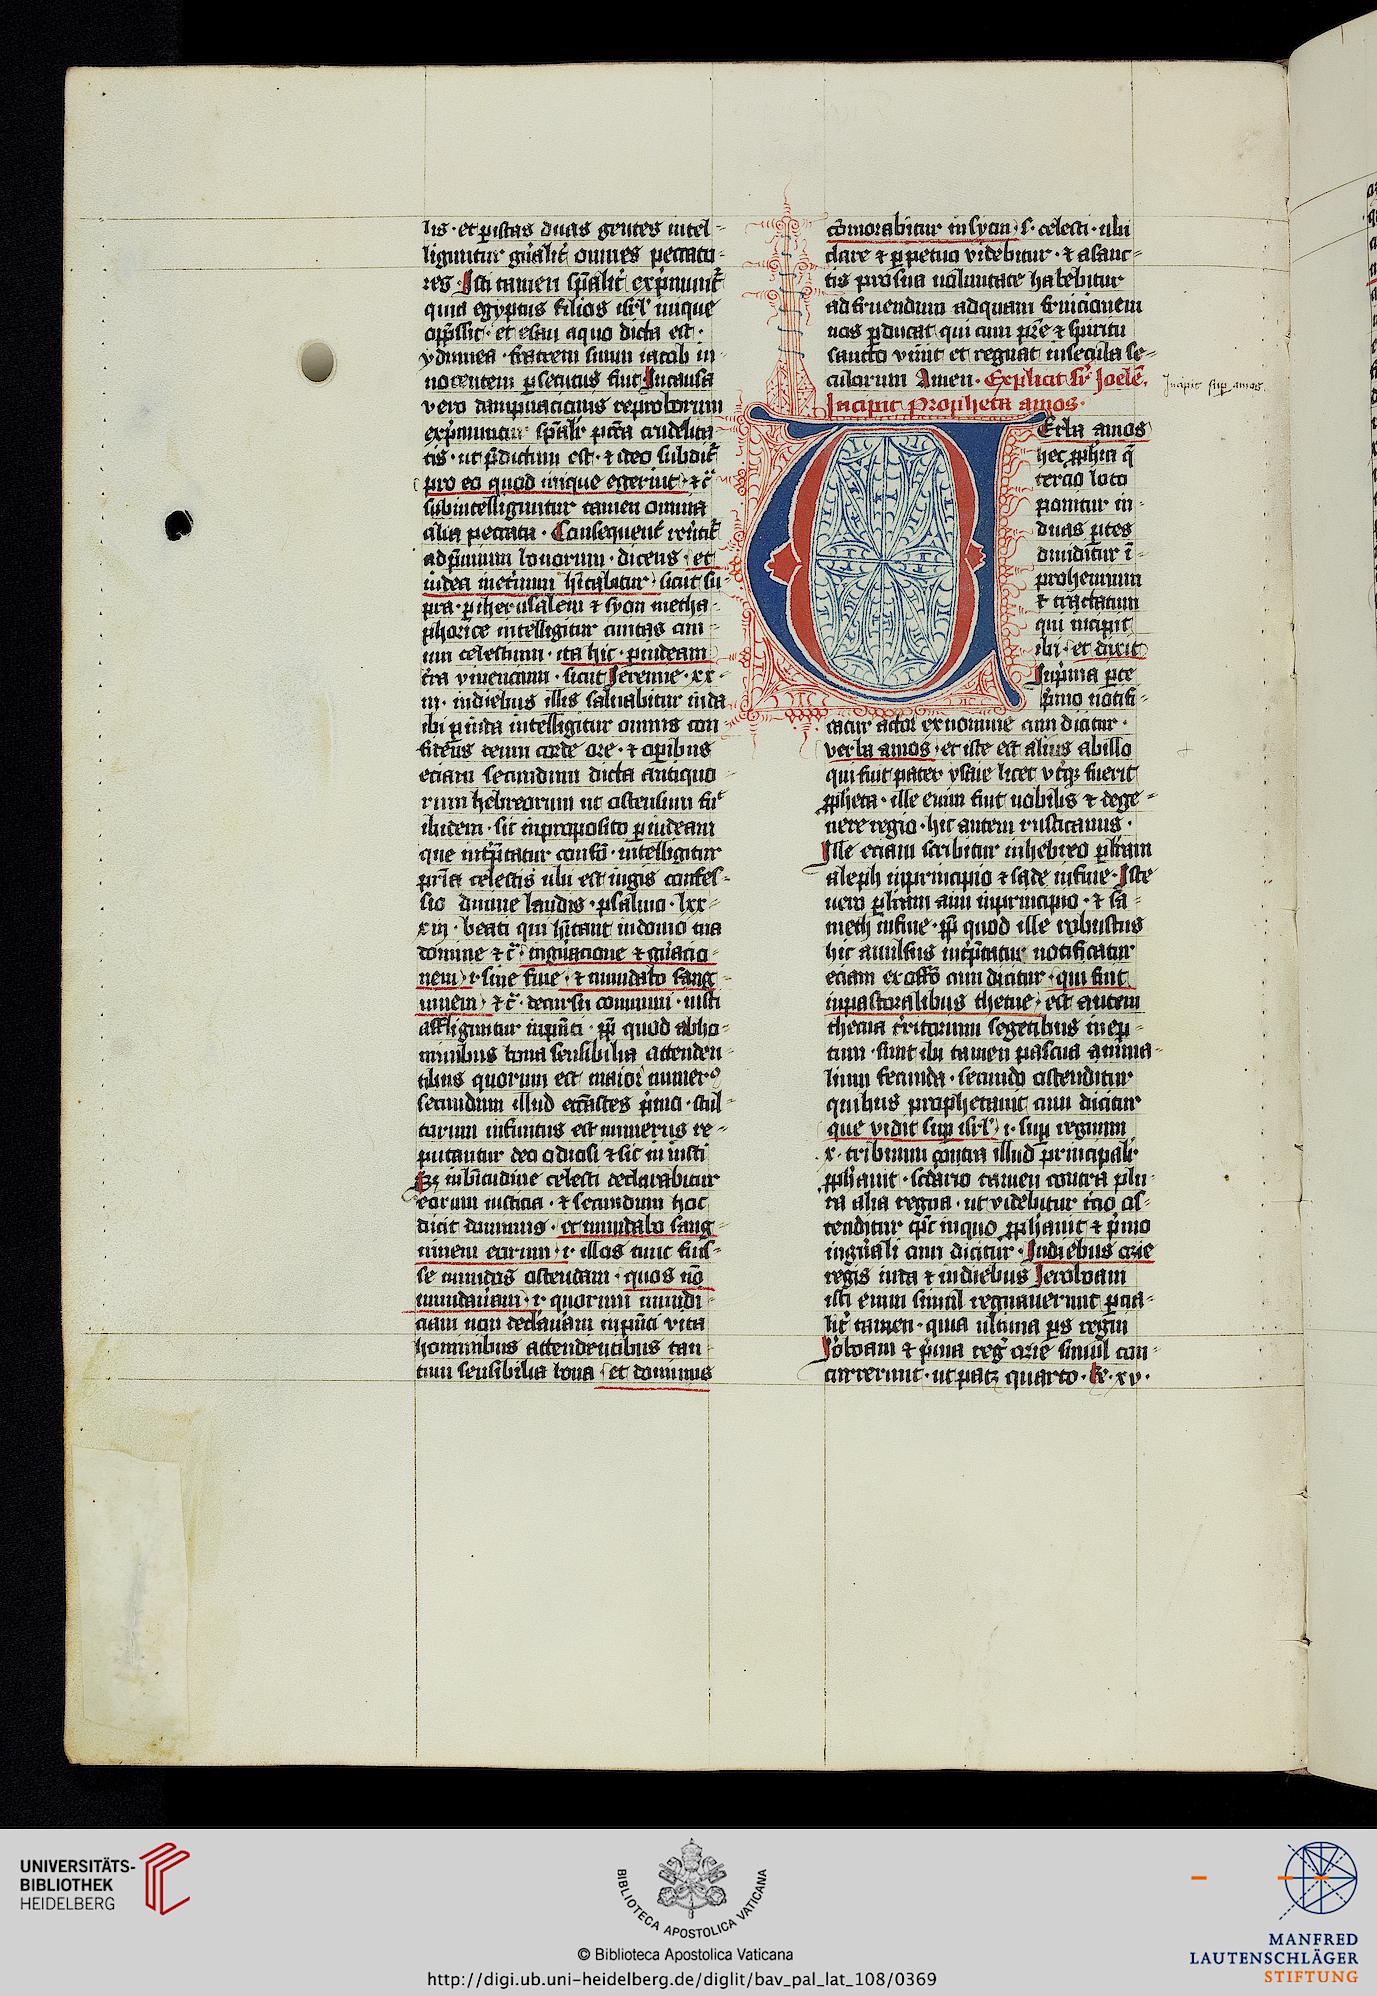 lis · et p istas duas gentes intel-
liguntur gn̄alit̄ omnes peccato-
res · Isti tamen sp̄alit̄ exp̄munt̄
quia egyptus filios isrl' inique
opp̄ssit · et esau a quo dicta est ·
ydumea · fratrem suum iacob in-
nocentem p secutus fuit Incausa
vero dampnacionis reproborum
exp̄muntur sp̄alr pctā crudelita-
tis · ut p̄dictum est · et ideo subdit̄
pro eo quod inique egerint · et c̄
subintelliguntur tamen omnia
alia peccata · Consequent̄ reūtit̄
ad p̄mium bonorum · dicens · et
iudea inet̄num hītabitur · sicut su-
pra · p iherusalem et syon metha-
phorice intelligitur ciuitas ciui-
um celestium · ita hic · p iudeam
t̄ra viuencium · sicut Jeremie · xx-
iii · indiebus illis saluabitur iuda
ibi p iuda intelligitur omnis con
fitens deum corde ore · et operibus
eciam secundum dicta antiquo
rum hebreorum ut ostensum fuᵗ
ibidem · sic inproposito p iudeam
que int̄p̄tatur confō · intelligitur
pr̄ia celestis ubi est iugis confes-
sio diuine laudis · psalmo · lxx-
xiij · beati qui hītant indomo tua
domine et c̄ · ingn̄acione et gn̄acio
nem · i · sine fine · et mundabo sang
uinem · et c̄ · decursu communi · iusti
affliguntur inp̄nti · pp̄ quod abho-
minibus bona sensibilia attenden-
tibus quorum est maior numerᵒ
secundum illud ecc̄astes p̄mo · stul-
torum infinitus est numerus re-
putantur deo odiosi et sic iniusti
Sz inbt̄itudine celesti declarabitur
eorum iusticia · et secundum hoc
dicit dominus · et mundabo sang
uinem eorum · i · illos tunc fuis-
se mundos ostendam · quos nō
mundaūam · i · quorum mundi-
ciam non declaūam inp̄nti vita
hominibus attendentibus tan
tum sensibilia bona · et dominus
cōmorabitur in syon · s · celesti · ubi
clare et p petuo videbitur · et asanc-
tis prosua uoluntate habebitur
ad fruendum adquam fruicionem
nos p ducat qui cum pr̄e et spiritu
sancto viuit et regnat insecula se-
culorum Amen · Explicit sr̄ Joelē ·
Incipit Propheta amos ·
Incipit sup amos ·
VErba amos
hec pph̄ia q̄
tercio loco
ponitur in-
duas ptes
diuiditur ī-
prohemium
et tractatum
qui incipit
ibi · et dixit
Inp̄ma pte
p̄mo notifi-
catur actor ex nomine cum dicitur ·
verba amos · et iste est alius abillo
qui fuit pater ysaie licet ut̄qz fuerit
ppheta · ille enim fuit nobilis et dege-
nere regio · hic autem rusticanus ·
Ille eciam scribitur inhebreo p lr̄am
aleph inprincipio et sade infine · Iste
uero p lr̄am ain inprincipio · et sa-
mech infine · pp̄ quod ille robustus
hic auulsus int̄p̄tatur notificatur
eciam ex offō cum dicitur · qui fuit
inpastoralibus thecue · est autem
thecua t̄ritorium segetibus inep-
tum · sunt ibi tamen pascua anima-
lium fecunda · secundo ostenditur
quibus prophetauit cum dicitur
que vidit sup isrl' · i · sup regnum
x · tribuum contra illud principalr
pph̄auit · sc̄dario tamen contra plu-
ra alia regna · ut videbitur t̄cio os-
tenditur tp̄c inquo pph̄auit et p̄mo
ingn̄ali cum dicitur · Indiebus ozie
regis iuda et indiebus Jeroboam
isti enim simul regnauerunt p cia-
lit̄ tamen · quia ultima ps regni
Jr̄oboam et p̄ma reḡ ozie simul con-
currerunt · ut patz quarto · Re · xv ·
UNIVERSITÄTS-
BIBLIOTHEK
HEIDELBERG
BIBLIOTECA APOSTOLICA VATICANA
© Biblioteca Apostolica Vaticana
http://digi.ub.uni-heidelberg.de/diglit/bav_pal_lat_108/0369
MANFRED
LAUTENSCHLÄGER
STIFTUNG